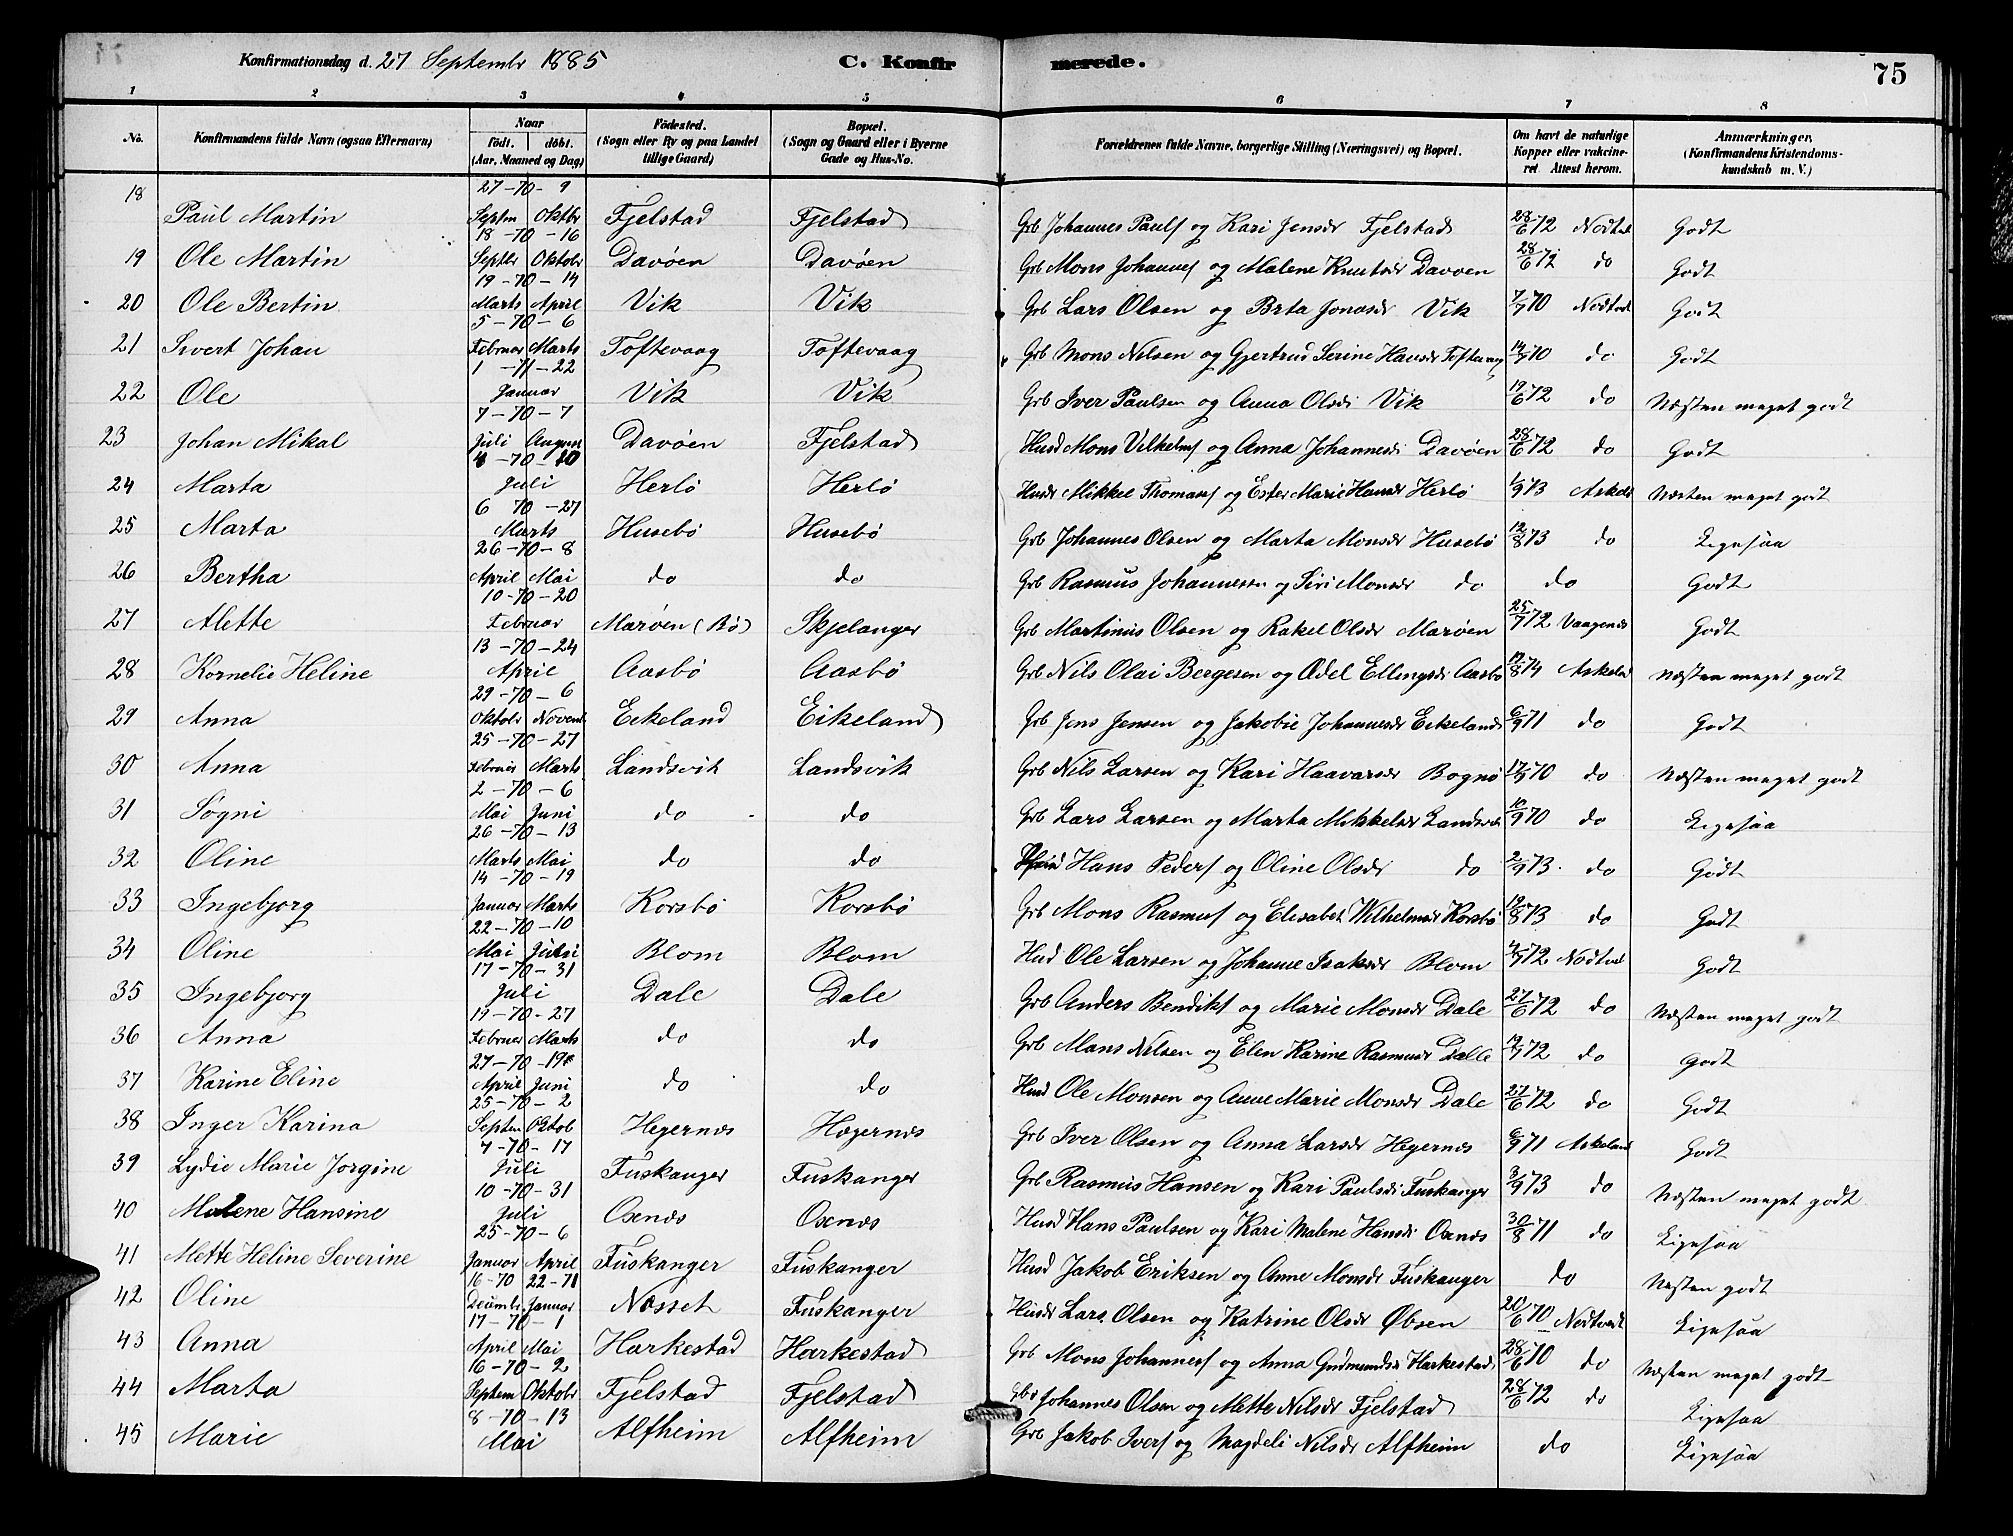 Konfirmationsdag d. 27 Septembr 1885 C. Konfir merede. 75
1 2 3 4 5 6 7 8
No. Konfirmandens fulde Navn (ogsaa Efternavn) Naar født. døbt. (Aar, Maaned og Dag) Fødested. (Sogn eller By og paa Landet tillige Gaard) Bopæl. (Sogn og Gaard eller i Byerne Gade og Hus-No. Forældrenes fulde Navne, borgerlige Stilling (Næringsvei) og Bopæl. Om havt de naturlige Kopper eller vakcineret. Attest herom. Anmærkninger, (Konfirmandens Kristendomskundskab m. V.)
18 Paul Martin 27-70-9 Septm Oktbr Fjelstad Fjelstad Grb Johannes Pauls og Kari Jensdr Fjelstad 28/6 72 Nodtvedt Godt
19 Ole Martin 18-70-16 Septbr Oktobr Davøen Davøen Grb Mons Johannes og Malene Knutsdr Davøen 28/6 72 do Godt
20 Ole Bertin 19-70-14 Marts April Vik Vik Grb Lars Olsen og Brta Jonasdr Vik 7/7 70 Nodtvedt Godt
21 Sivert Johan 5-70-6 Februar Marts Toftevaag Toftevaag Grb Mons Nilsen og Gjertrud Serine Hansdr Toftevaag 14/9 70 do Godt
22 Ole 1-71-22 Januar Vik Vik Grb Iver Paulsen og Anna Olsdr Vik 19/6 72 do Næsten meget godt
23 Johan Mikal 7-70-7 Juli August Davøen Fjelstad Husd Mons Vilhelms og Anna Johannesdr Davøen 28/6 72 do Godt
24 Marta 4-70-10 Juli Herlø Herlø Husdr Mikkel Thomass og Ester Marie Hansdr Herlø 1/9 73 Askeld Næsten meget godt
25 Marta 6 70-27 Marts Husebø Husebø Grb Johannes Olsen og Marta Monsdr Husebø 12/8 73 do Ligesaa
26 Bertha 26-70-8 April Mai do do Grb Rasmus Johannessen og Siri Monsdr do do Godt
27 Alette 10-70-20 Februar Marøen (Bø) Skjelanger Grb Martinus Olsen og Rakel Olsdr Marøen 25/7 72 Vaagenes Godt
28 Kornelie Heline 13-70-24 April Aasbø Aasbø Grb Nils Olai Bergesen og Odel Ellingsdr Aasbø 17/8 74 Askeland Næsten meget godt
29 Anna 29-70-6 Oktobr Novemb Eikeland Eikeland Grb Jens Jensen og Jakobie Johannesdr Eikeland 6/9 71 do Godt
30 Anna 25-70-27 Februar Marts Landsvik Landsvik Grb Nils Larsen og Kari Haavarsdr Bognø 17/9 70 do Næsten meget godt
31 Søgni 2-70-6 Mai Juni do do Grb Lars Larsen og Marta Mikkelsdr Landsvik 10/9 70 do Ligesaa
32 Oline 26-70-13 Marts Mai do do Hans Peders og Oline Olsdr do 2/9 73 do Godt
33 Ingebjorg 14-70-19 Januar Marts Korsbø Korsbø Grb Mons Rasmus og Elisabet Wilhelmsdr Korsbø 12/8 73 do Godt
34 Oline 22-70-10 Mai Juli Blom Blom Husd Ole Larsen og Johanne Isaksdr Blom 4/7 72 Nodtvedt Godt
35 Ingebjorg 17-70-31 Juli Dale Dale Grb Anders Bendiks og Marie Monsdr Dale 27/6 72 do Næsten meget godt
36 Anna 17-70-27 Februar Marts do do Grb Mons Nilsen og Elen Karine Rasmusdr Dale 7/7 72 do Godt
37 Karine Eline 27-70-19 April Juni do do Husd Ole Monsen og Anne Marie Monsdr Dale 27/6 72 do Godt
38 Inger Karina 25-70-2 Septem Oktob Hegernæs Hægernæs Grb Iver Olsen og Anna Larsdr Hegernæs 6/9 71 Askeland Godt
39 Lydie Marie Jorgine 4-70-17 Juli Fuskanger Fuskanger Grb Rasmus Hansen og Kari Paulsdr Fuskanger 3/9 73 do Næsten meget godt
40 Malene Hansine 10-70-31 Juli Oxnæs Oxnæs Husd Hans Paulsen og Kari Malene Hansdr Oxnæs 30/8 71 do Ligesaa
41 Mette Heline Severine 25-70-6 Januar April Fuskanger Fuskanger Husd Jakob Eriksen og Anne Monsdr Fuskanger do Næsten godt
42 Oline 16-70 22-71 Decembr Januar Nosset Fuskanger Husdr Lars Olsen og Katrine Olsdr Øbsen 20/6 70 Nodtvedt Ligesaa
43 Anna 17-70-1 April Mai Harkestad Harkestad Grb Mons Johanness og Anna Gudmundsdr Harkestad 28/6 70 do Næsten meget godt
44 Marta 16-70-2 Septem Oktobr Fjelstad Fjelstad Gbr Johannes Olsen og Mette Nilsdr Fjelstad 28/6 72 do Ligesaa
45 Marie 8-70-13 Mai Alfheim Alfheim Grb Jakob Ivers og Magdeli Nilsdr Alfheim do Ligesaa